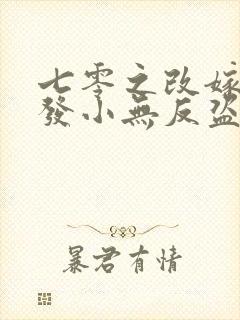 七零之改嫁
發小無反盜
暴君有情